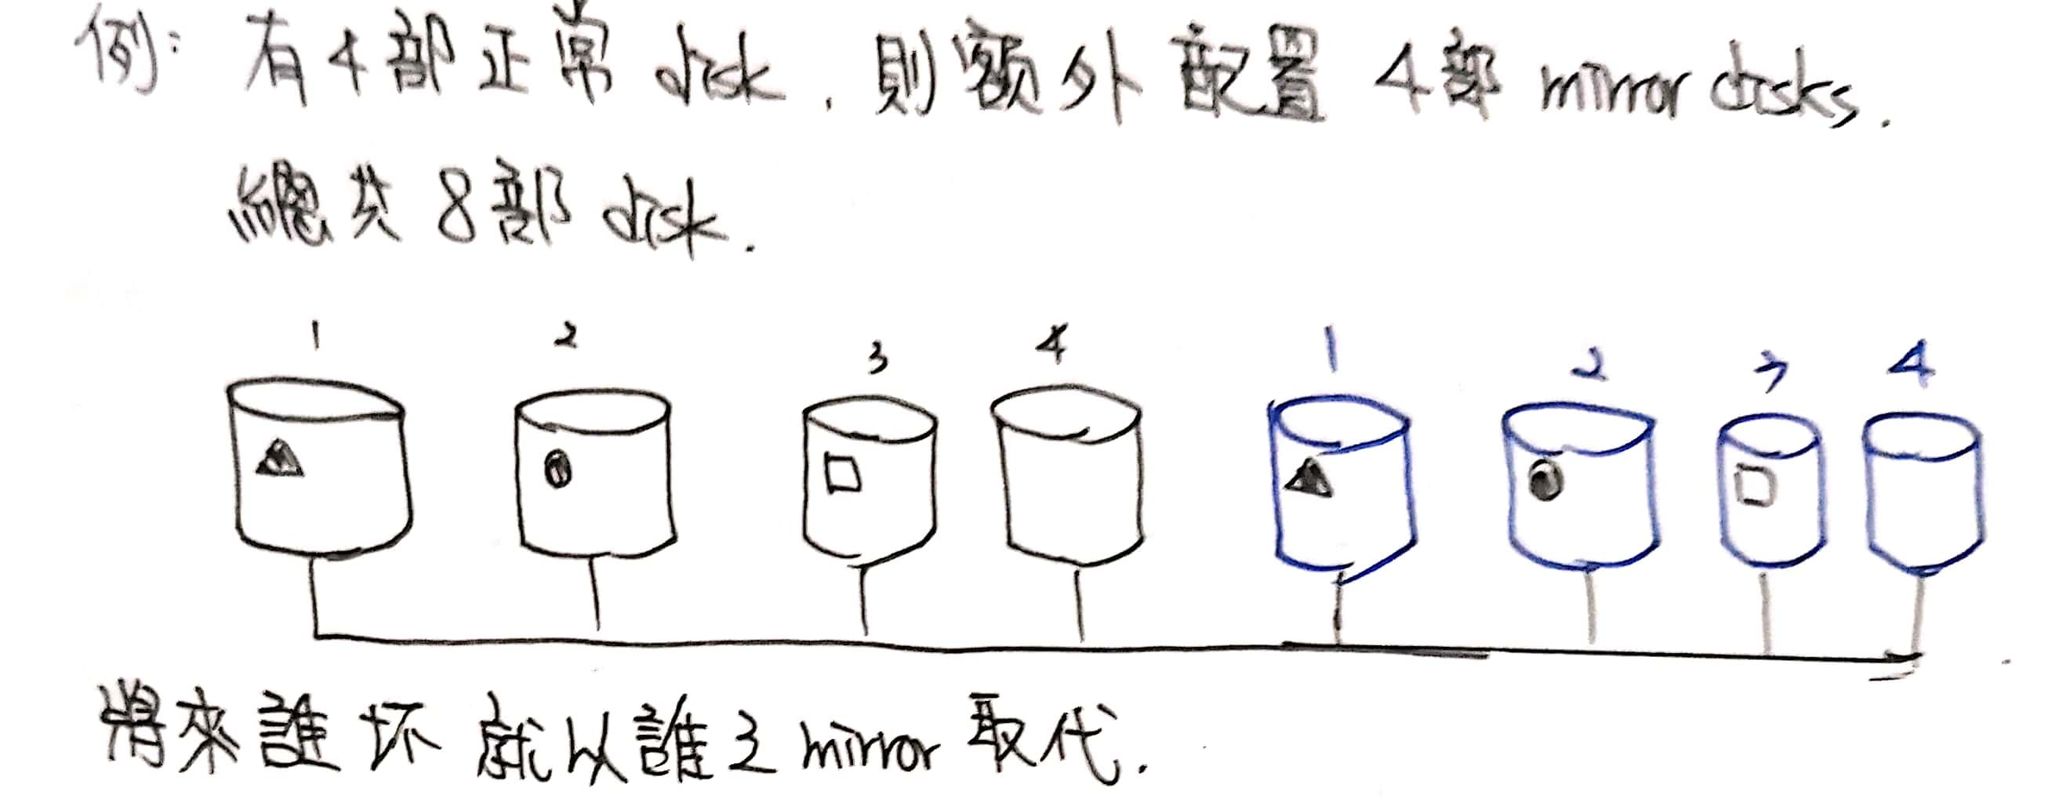 例: 有4部正常 disk, 則額外配置 4部 mirror disks.
總共 8部 disk.
1 2 3 4 1 2 3 4
將來誰坏 就以誰之 mirror 取代.